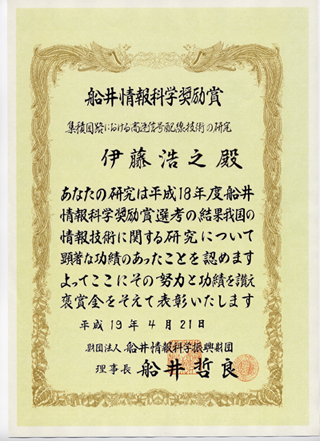 船井情報科学奨励賞
集積回路における高速信号配線技術の研究
伊藤浩之殿
あなたの研究は平成18年度船井
情報科学奨励賞選考の結果我国の
情報技術に関する研究について
顕著な功績のあったことを認めます
よってここにその努力と功績を讃え
褒賞金をそえて表彰いたします
平成19年4月21日
財団法人 船井情報科学振興財団
理事長 船井哲良